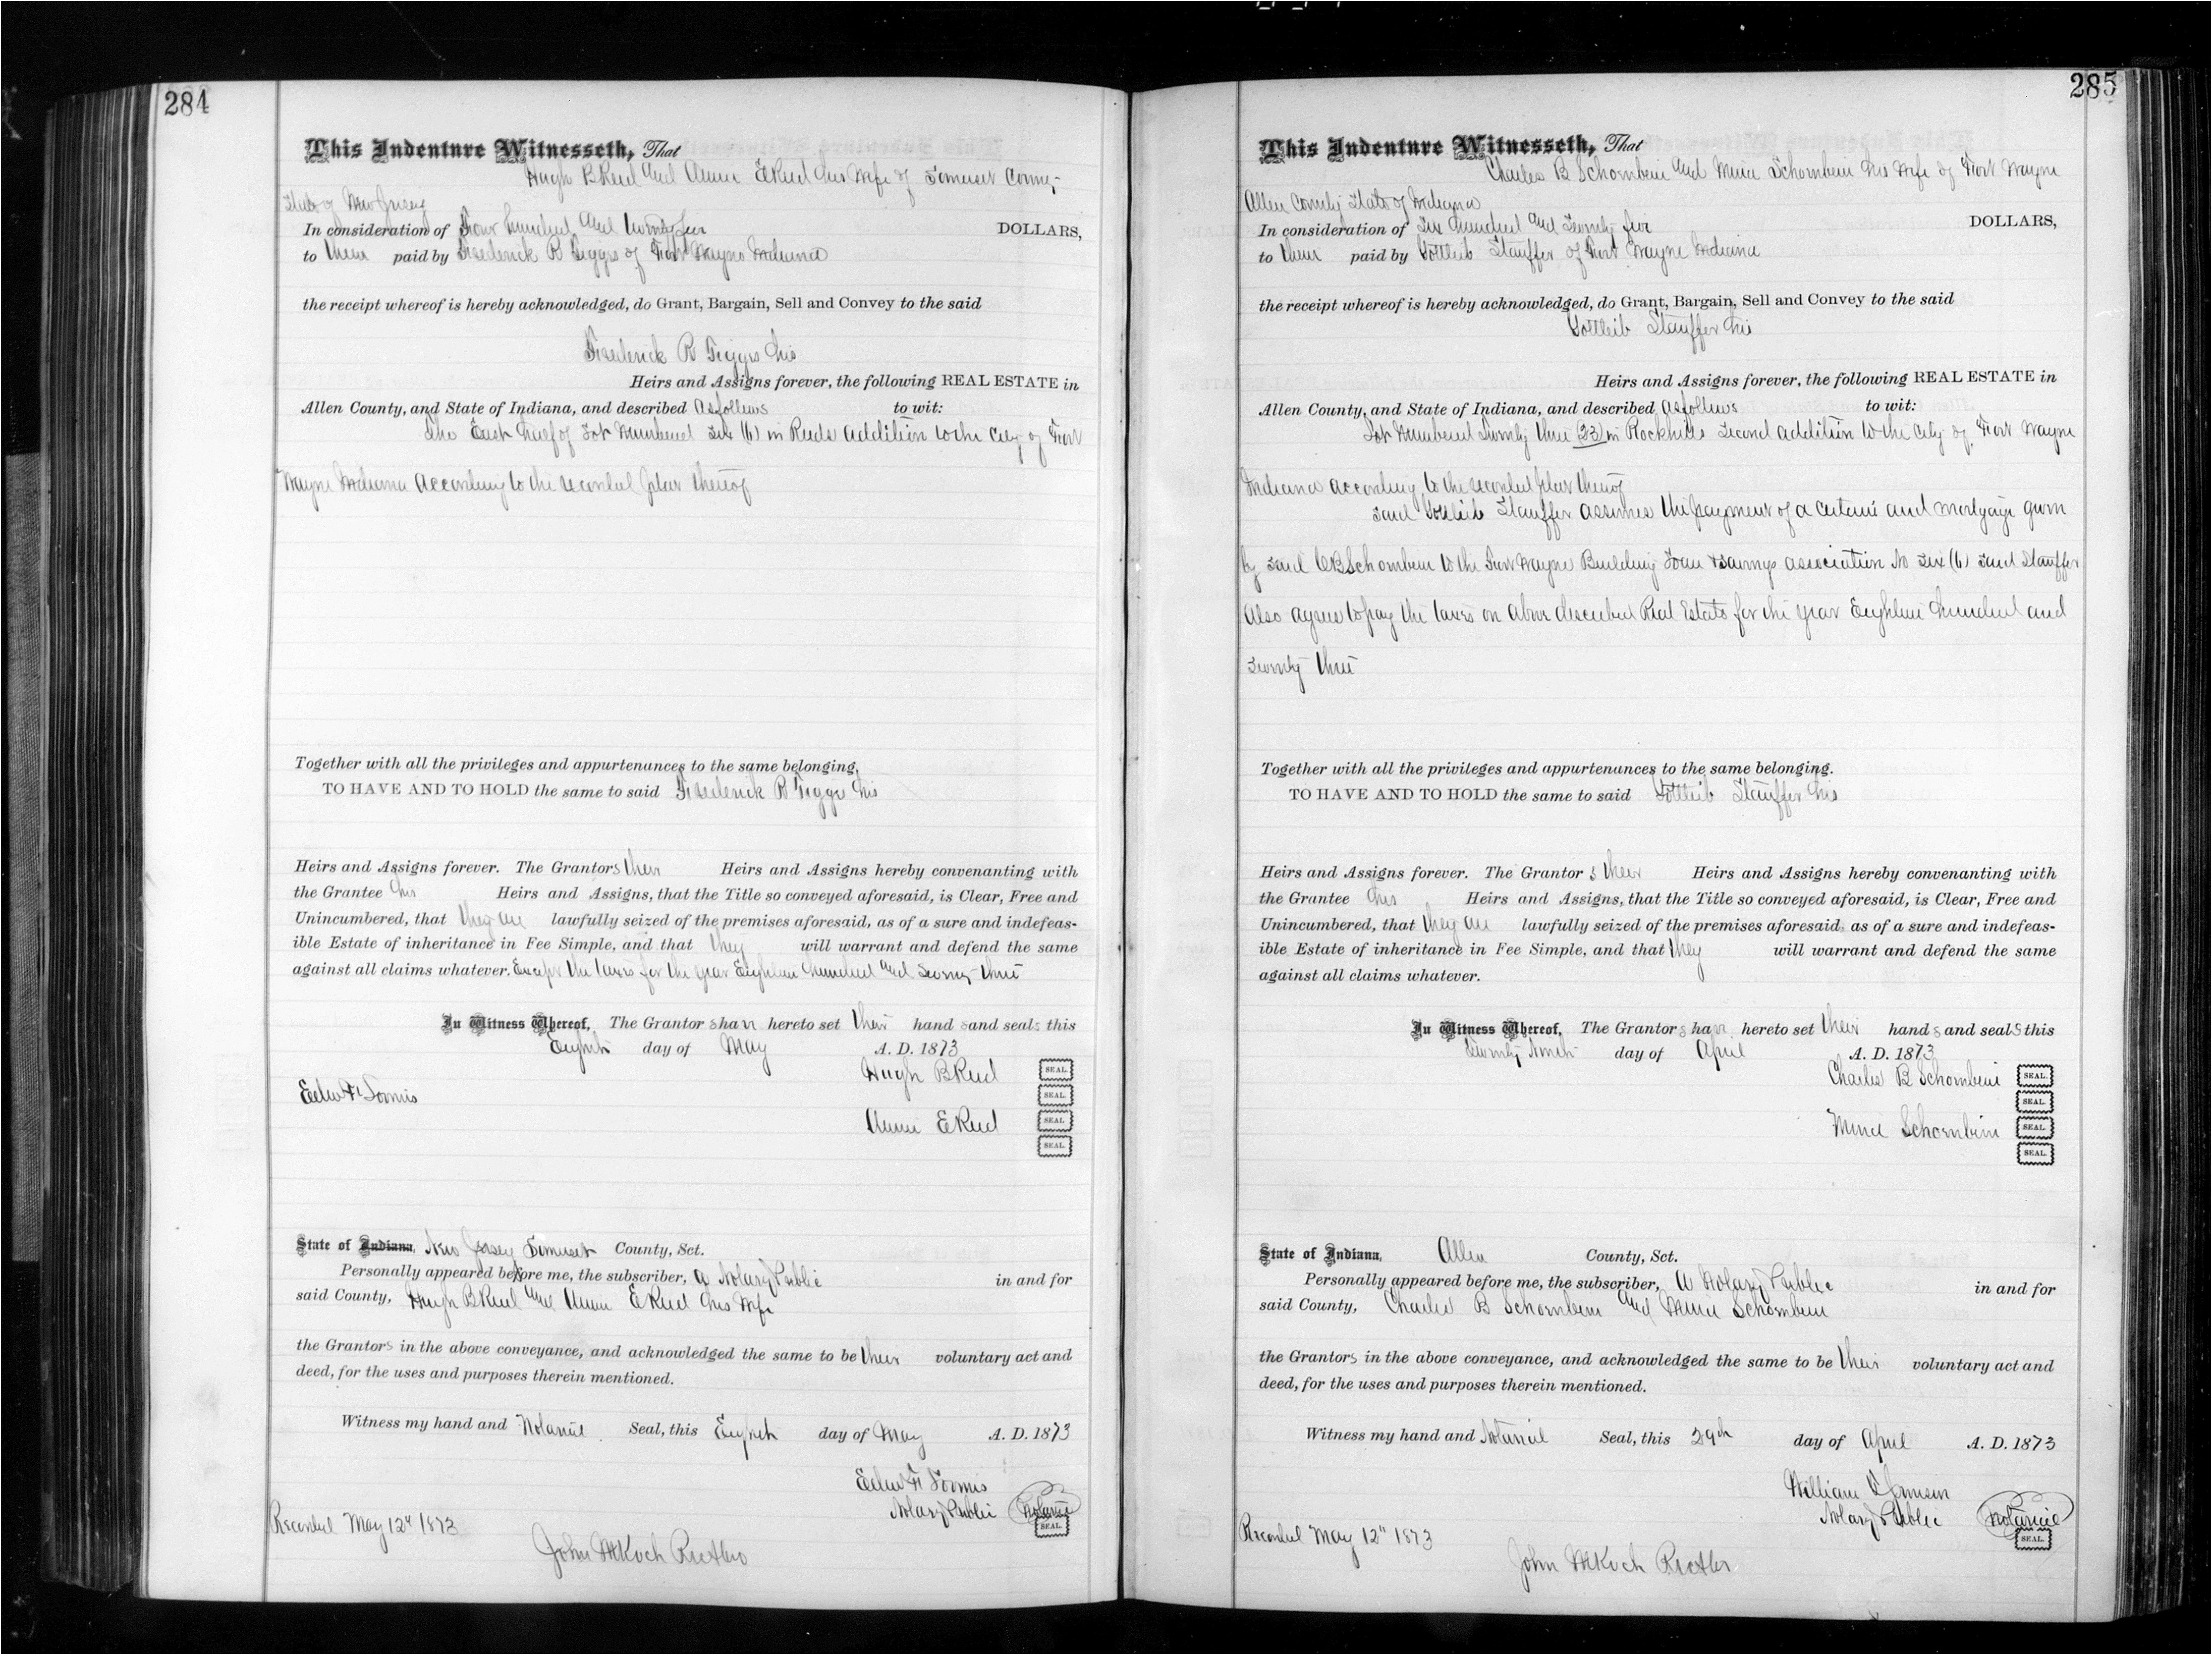 284
This Indenture Witnesseth, That
Hugh B Reed and Annie E Reed his Wife of Somerset County
State of New Jersey
In consideration of Four hundred and twenty five DOLLARS,
to them paid by Frederick R Figgis of Fort Wayne Indiana
the receipt whereof is hereby acknowledged, do Grant, Bargain, Sell and Convey to the said
Frederick R Figgis his
Heirs and Assigns forever, the following REAL ESTATE in
Allen County, and State of Indiana, and described as follows to wit:
The East half of Lot Numbered Six (6) in Reeds Addition to the City of Fort
Wayne Indiana According to the recorded plat thereof
Together with all the privileges and appurtenances to the same belonging,
TO HAVE AND TO HOLD the same to said Frederick R Figgis his
Heirs and Assigns forever. The Grantors their Heirs and Assigns hereby convenanting with
the Grantee his Heirs and Assigns, that the Title so conveyed aforesaid, is Clear, Free and
Unincumbered, that they are lawfully seized of the premises aforesaid, as of a sure and indefeas-
ible Estate of inheritance in Fee Simple, and that they will warrant and defend the same
against all claims whatever. Except the taxes for the year Eighteen hundred and Seventy three
In Witness Whereof, The Grantors have hereto set their hands and seals this
Eighth day of May A. D. 1873
Hugh B Reed SEAL
SEAL
Annie E Reed SEAL
SEAL
State of Indiana, New Jersey Somerset County, Sct.
Personally appeared before me, the subscriber, a Notary Public in and for
said County, Hugh B Reed and Annie E Reed his Wife
the Grantors in the above conveyance, and acknowledged the same to be their voluntary act and
deed, for the uses and purposes therein mentioned.
Witness my hand and Notarial Seal, this Eighth day of May A. D. 1873
Notary Public Notarial SEAL
Recorded May 12" 1873
John M Koch
285
This Indenture Witnesseth, That
Charles B Schornbein and Mina Schornbein his Wife of Fort Wayne
Allen County State of Indiana
In consideration of Six hundred and Twenty five DOLLARS,
to them paid by Gottleib Stauffer of Fort Wayne Indiana
the receipt whereof is hereby acknowledged, do Grant, Bargain, Sell and Convey to the said
Gottleib Stauffer his
Heirs and Assigns forever, the following REAL ESTATE in
Allen County, and State of Indiana, and described as follows to wit:
Lot Numbered Twenty three (23) in Rockhills Second Addition to the City of Fort Wayne
Indiana according to the recorded plat thereof
Said Gottleib Stauffer assumes the payment of a certain and mortgage given
by said C B Schornbein to the Fort Wayne Building Loan & Savings association No Six (6) Said Stauffer
Also agrees to pay the taxes on above described Real Estate for the year Eighteen hundred and
Seventy three
Together with all the privileges and appurtenances to the same belonging.
TO HAVE AND TO HOLD the same to said Gottleib Stauffer his
Heirs and Assigns forever. The Grantors their Heirs and Assigns hereby convenanting with
the Grantee his Heirs and Assigns, that the Title so conveyed aforesaid, is Clear, Free and
Unincumbered, that they are lawfully seized of the premises aforesaid, as of a sure and indefeas-
ible Estate of inheritance in Fee Simple, and that they will warrant and defend the same
against all claims whatever.
In Witness Whereof, The Grantors have hereto set their hands and seals this
Twenty Ninth day of April A. D. 1873
Charles B Schornbein SEAL
SEAL
Mina Schornbein SEAL
SEAL
State of Indiana, Allen County, Sct.
Personally appeared before me, the subscriber, A Notary Public in and for
said County, Charles B Schornbein and Mina Schornbein
the Grantors in the above conveyance, and acknowledged the same to be their voluntary act and
deed, for the uses and purposes therein mentioned.
Witness my hand and Notarial Seal, this 29th day of April A. D. 1873
William
Notary Public Notarial SEAL
Recorded May 12" 1873
John M Koch